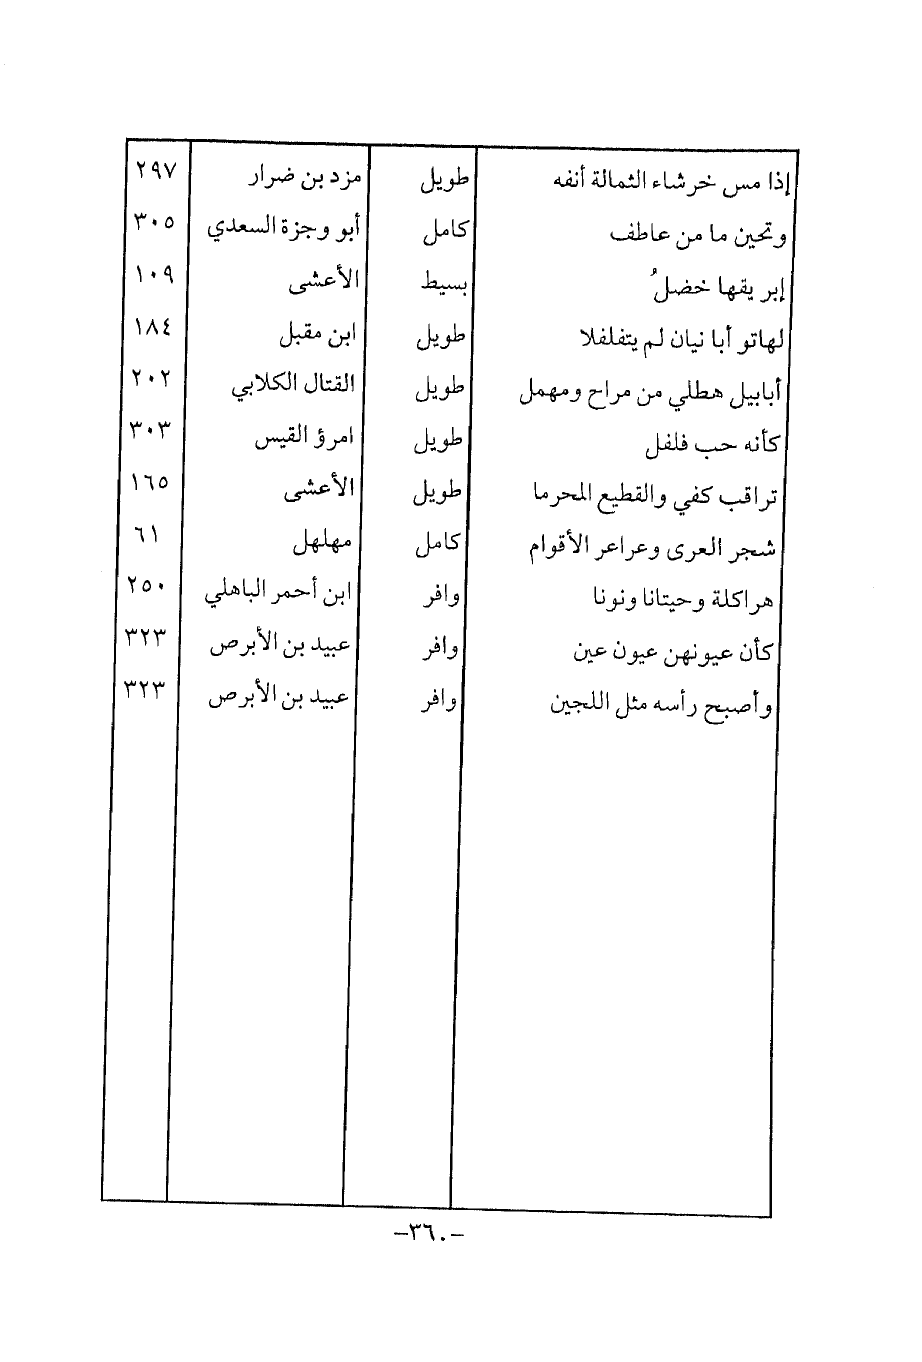 إذا مس خرشاء الثمالة أنفه طويل مزد بن ضرار ٢٩٧
وتحين ما من عاطف كامل أبو وجزة السعدي ٣٠٥
إبر يقها خضلُ بسيط الأعشى ١٠٩
لهاتو أبا نيان لم يتفلفلا طويل ابن مقبل ١٨٤
أبابيل هطلي من مراح ومهمل طويل القتال الكلابي ٢٠٢
كأنه حب فلفل طويل امرؤ القيس ٣٠٣
تراقب كفي والقطيع المحرما طويل الأعشى ١٦٥
شجر العرى وعراعر الأقوام كامل مهلهل ٦١
هراكلة وحيتانا ونونا وافر ابن أحمر الباهلي ٢٥٠
كأن عيونهن عيون عين وافر عبيد بن الأبرص ٣٢٣
وأصبح رأسه مثل اللجين وافر عبيد بن الأبرص ٣٢٣
–٣٦٠–